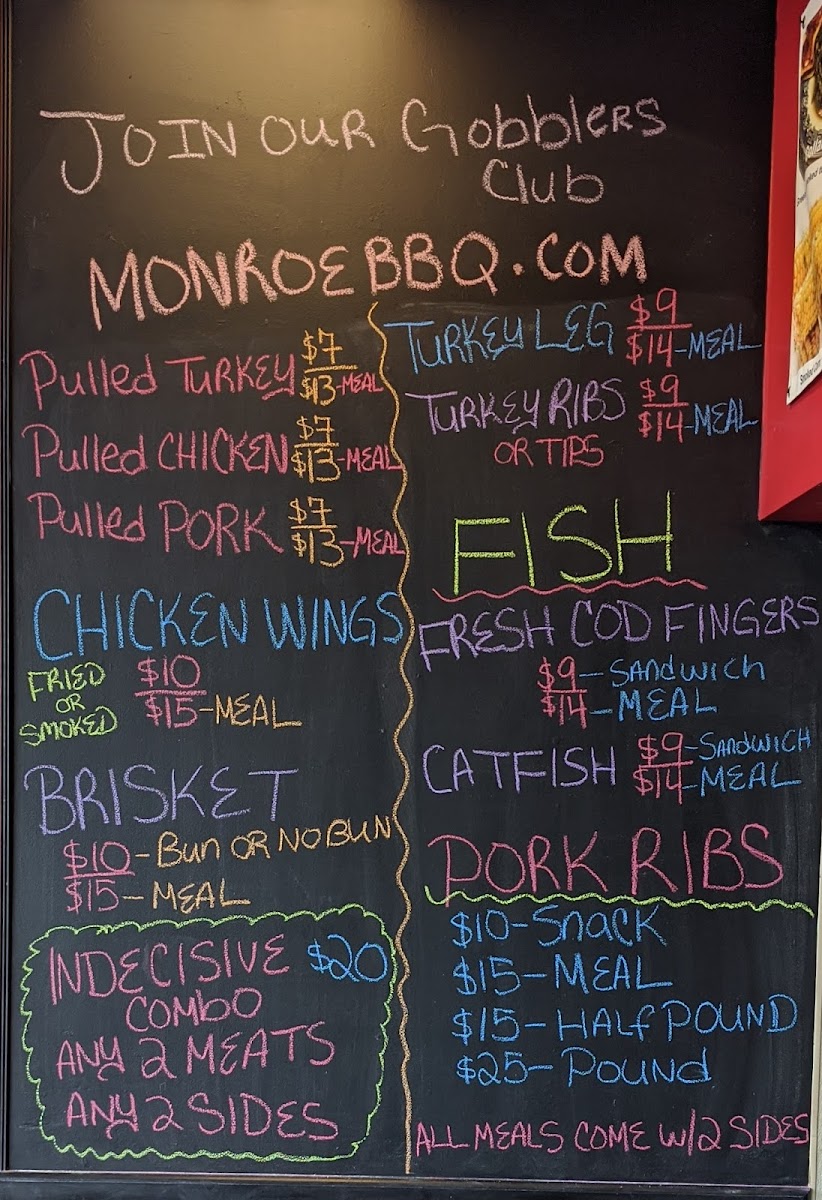 JOIN OUR Gobblers
Club
MONROEBBQ.COM
Pulled TURKEY $7
$13-MEAL
Pulled CHICKEN $7
$13-MEAL
Pulled PORK $7
$13-MEAL
CHICKEN WINGS
FRIED
OR
SMOKED
$10
$15-MEAL
BRISKET
$10-BUN OR NO BUN
$15-MEAL
INDECISIVE $20
COMBO
ANY 2 MEATS
ANY 2 SIDES
TURKEY LEG $9
$14-MEAL
TURKEY RIBS $9
OR TIPS $14-MEAL
FISH
FRESH COD FINGERS
$9-SANDWICH
$14-MEAL
CATFISH $9-SANDWICH
$14-MEAL
PORK RIBS
$10-SNACK
$15-MEAL
$15-HALF POUND
$25-POUND
ALL MEALS COME W/2 SIDES